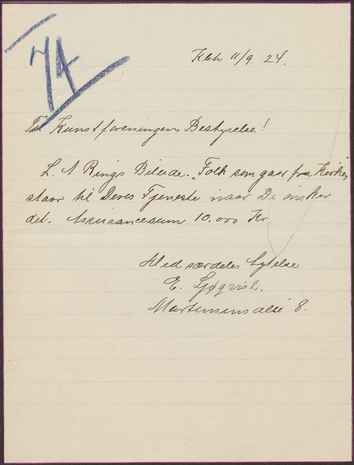 74
Kbh 11/9 24.
Til Kunstforeningens Bestyrelse!
L. A Rings Billede „Folk som gaar fra Kirke,
staar til Deres Tjeneste naar De ønsker
det. Assurancesum 10.000 Kr
Med særdeles Agtelse
E. Sjøqvist.
Martensens allé 8.